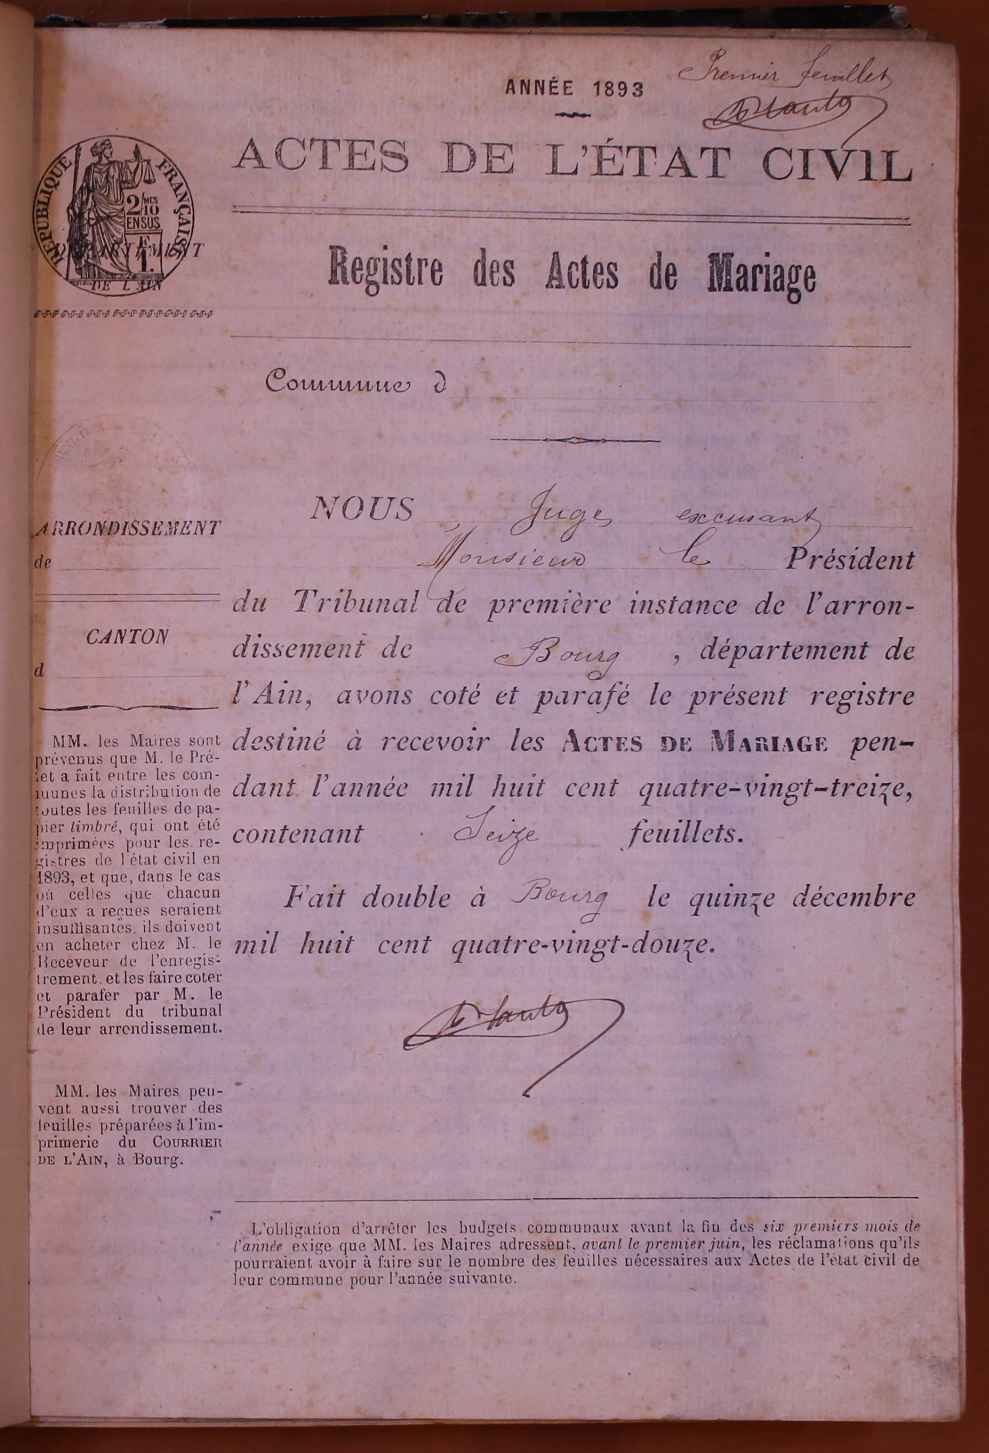 ANNÉE 1893
Premier feuillet
ACTES DE L'ÉTAT CIVIL
RÉPUBLIQUE FRANÇAISE
2/MES
10
EN SUS
F.
1.
DÉPARTEMENT
DE L'AIN
Registre des Actes de Mariage
Commune d
ARRONDISSEMENT
de
CANTON
d
MM. les Maires sont
prévenus que M. le Pré-
fet a fait entre les com-
munes la distribution de
toutes les feuilles de pa-
pier timbré, qui ont été
imprimées pour les re-
gistres de l'état civil en
1893, et que, dans le cas
où celles que chacun
d'eux a reçues seraient
insuffisantes, ils doivent
en acheter chez M. le
Receveur de l'enregis-
trement, et les faire coter
et parafer par M. le
Président du tribunal
de leur arrondissement.
MM. les Maires peu-
vent aussi trouver des
feuilles préparées à l'im-
primerie du COURRIER
DE L'AIN, à Bourg.
NOUS Juge excusant
Monsieur le Président
du Tribunal de première instance de l'arron-
dissement de Bourg, département de
l'Ain, avons coté et parafé le présent registre
destiné à recevoir les ACTES DE MARIAGE pen-
dant l'année mil huit cent quatre-vingt-treize,
contenant Seize feuillets.
Fait double à Bourg le quinze décembre
mil huit cent quatre-vingt-douze.
L'obligation d'arrêter les budgets communaux avant la fin des six premiers mois de
l'année exige que MM. les Maires adressent, avant le premier juin, les réclamations qu'ils
pourraient avoir à faire sur le nombre des feuilles nécessaires aux Actes de l'état civil de
leur commune pour l'année suivante.